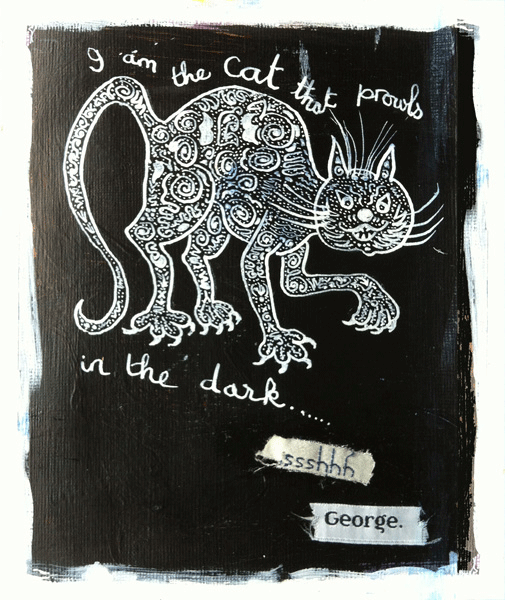 I am the cat that prowls
in the dark......
ssshhh
George.